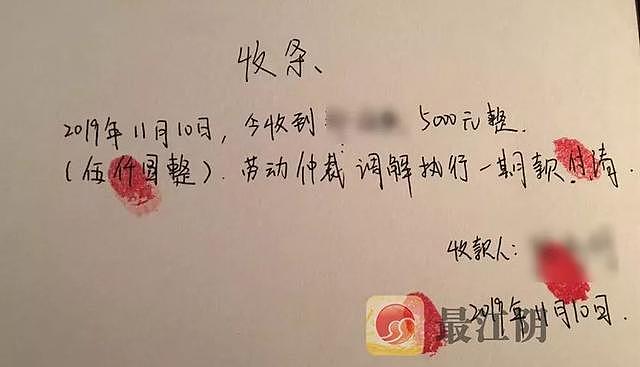 收条、
2019年11月10日，今收到 5000元整.
(伍仟圆整). 劳动仲裁调解执行一期款付清.
收款人:
2019年11月10日.
最江阴